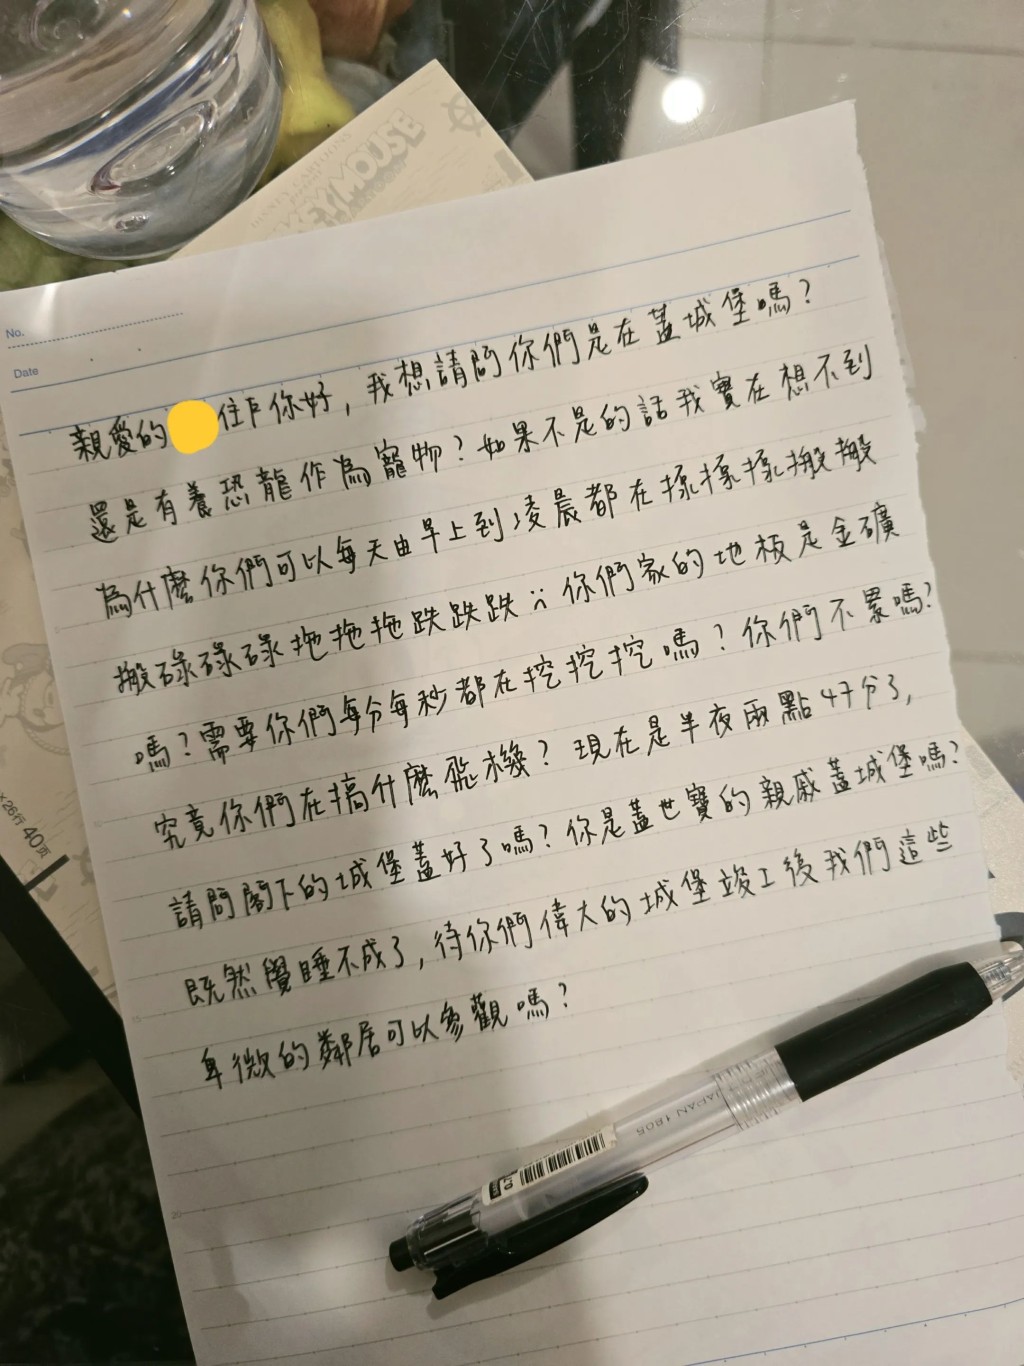 MICKEY MOUSE
No.
Date
親愛的 住戶你好，我想請問你們是在蓋城堡嗎？
還是有養恐龍作為寵物？如果不是的話我實在想不到
為什麼你們可以每天由早上到凌晨都在搡搡搡搬搬
搬碌碌碌拖拖拖跌跌跌 :( 你們家的地板是金礦
嗎？需要你們每分每秒都在挖挖挖嗎？你們不累嗎？
究竟你們在搞什麼飛機？現在是半夜兩點47分了，
請問閣下的城堡蓋好了嗎？你是蓋世寶的親戚蓋城堡嗎？
既然覺睡不成了，待你們偉大的城堡竣工後我們這些
卑微的鄰居可以參觀嗎？
×26行 40页
JAPAN 1805